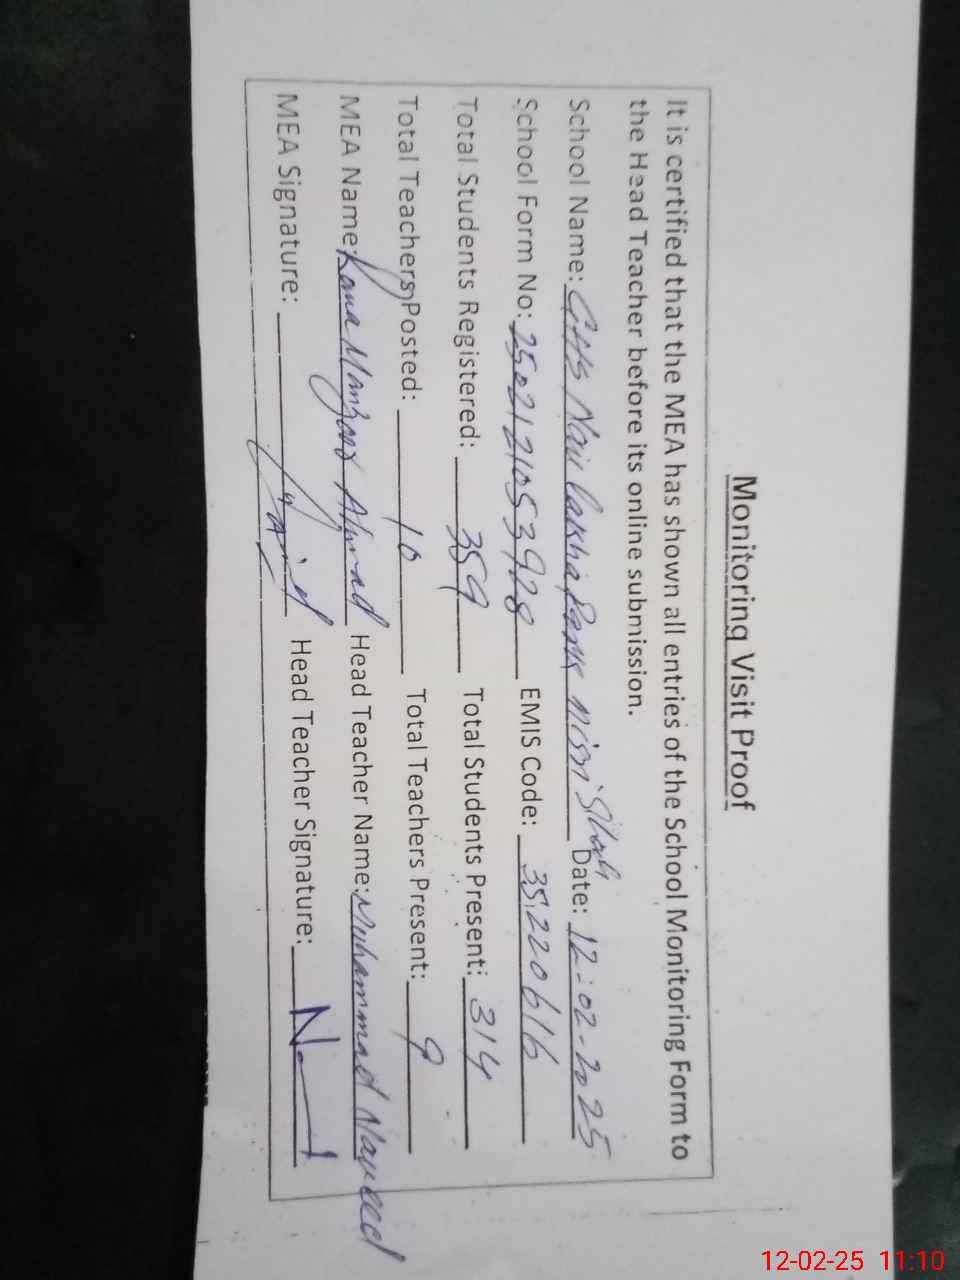 Monitoring Visit Proof
It is certified that the MEA has shown all entries of the School Monitoring Form to
the Head Teacher before its online submission.
School Name: GHS Date: 12-02-2025
School Form No: 2502121053928 EMIS Code: 35220616
Total Students Registered: 359 Total Students Present: 314
Total Teachers Posted: 10 Total Teachers Present: 9
MEA Name: Rana Manzoor Ahmad Head Teacher Name: Muhammad Naveed
MEA Signature: Head Teacher Signature:
12-02-25 11:10